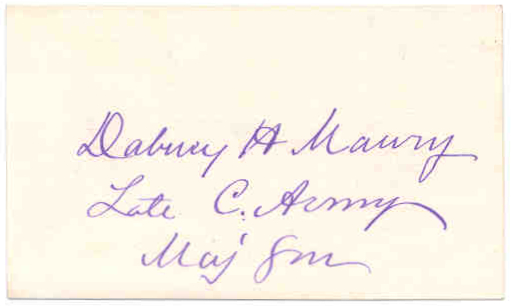 Dabney H Maury
Late C. Army
Maj Gen